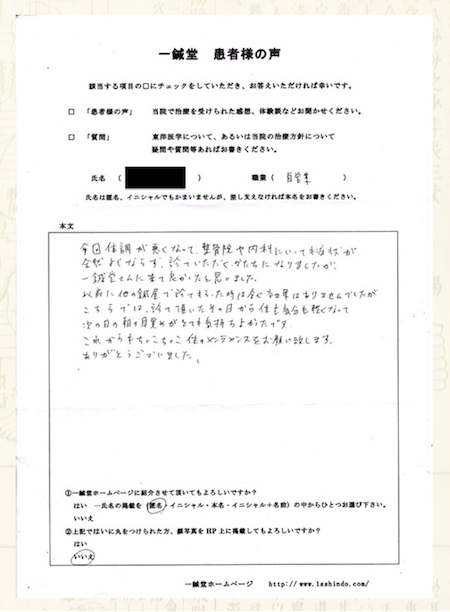 一鍼堂 患者様の声
該当する項目の□にチェックをしていただき、お答えいただければ幸いです。
□ 「患者様の声」 当院で治療を受けられた感想、体験談などお聞かせください。
□ 「質問」 東洋医学について、あるいは当院の治療方針について
疑問や質問等あればお書きください。
氏名 ( ) 職業 ( 自営業 )
氏名は匿名、イニシャルでもかまいませんが、差し支えなければ本名をお書きください。
本文
今回体調が悪くなって、整骨院や内科にいっても症状が
全然よくならず、診ていただくかたちになりましたが、
一鍼堂さんに来て良かったと思いました。
以前に他の鍼屋で診てもらった時は全く効果はありませんでしたが
こちらでは、診て頂いたその日から体も気分も軽くなって
次の日の朝の目覚めがとても気持ちよかったです
これからもちょこちょこ体のメンテナンスをお願い致します。
ありがとうございました。
①一鍼堂ホームページに紹介させて頂いてもよろしいですか？
はい …氏名の掲載を（匿名・イニシャル・本名・イニシャル＋名前）の中からひとつお選び下さい。
いいえ
②上記ではいに丸をつけられた方、顔写真をHP上に掲載してもよろしいですか？
はい
いいえ
一鍼堂ホームページ http://www.1sshindo.com/